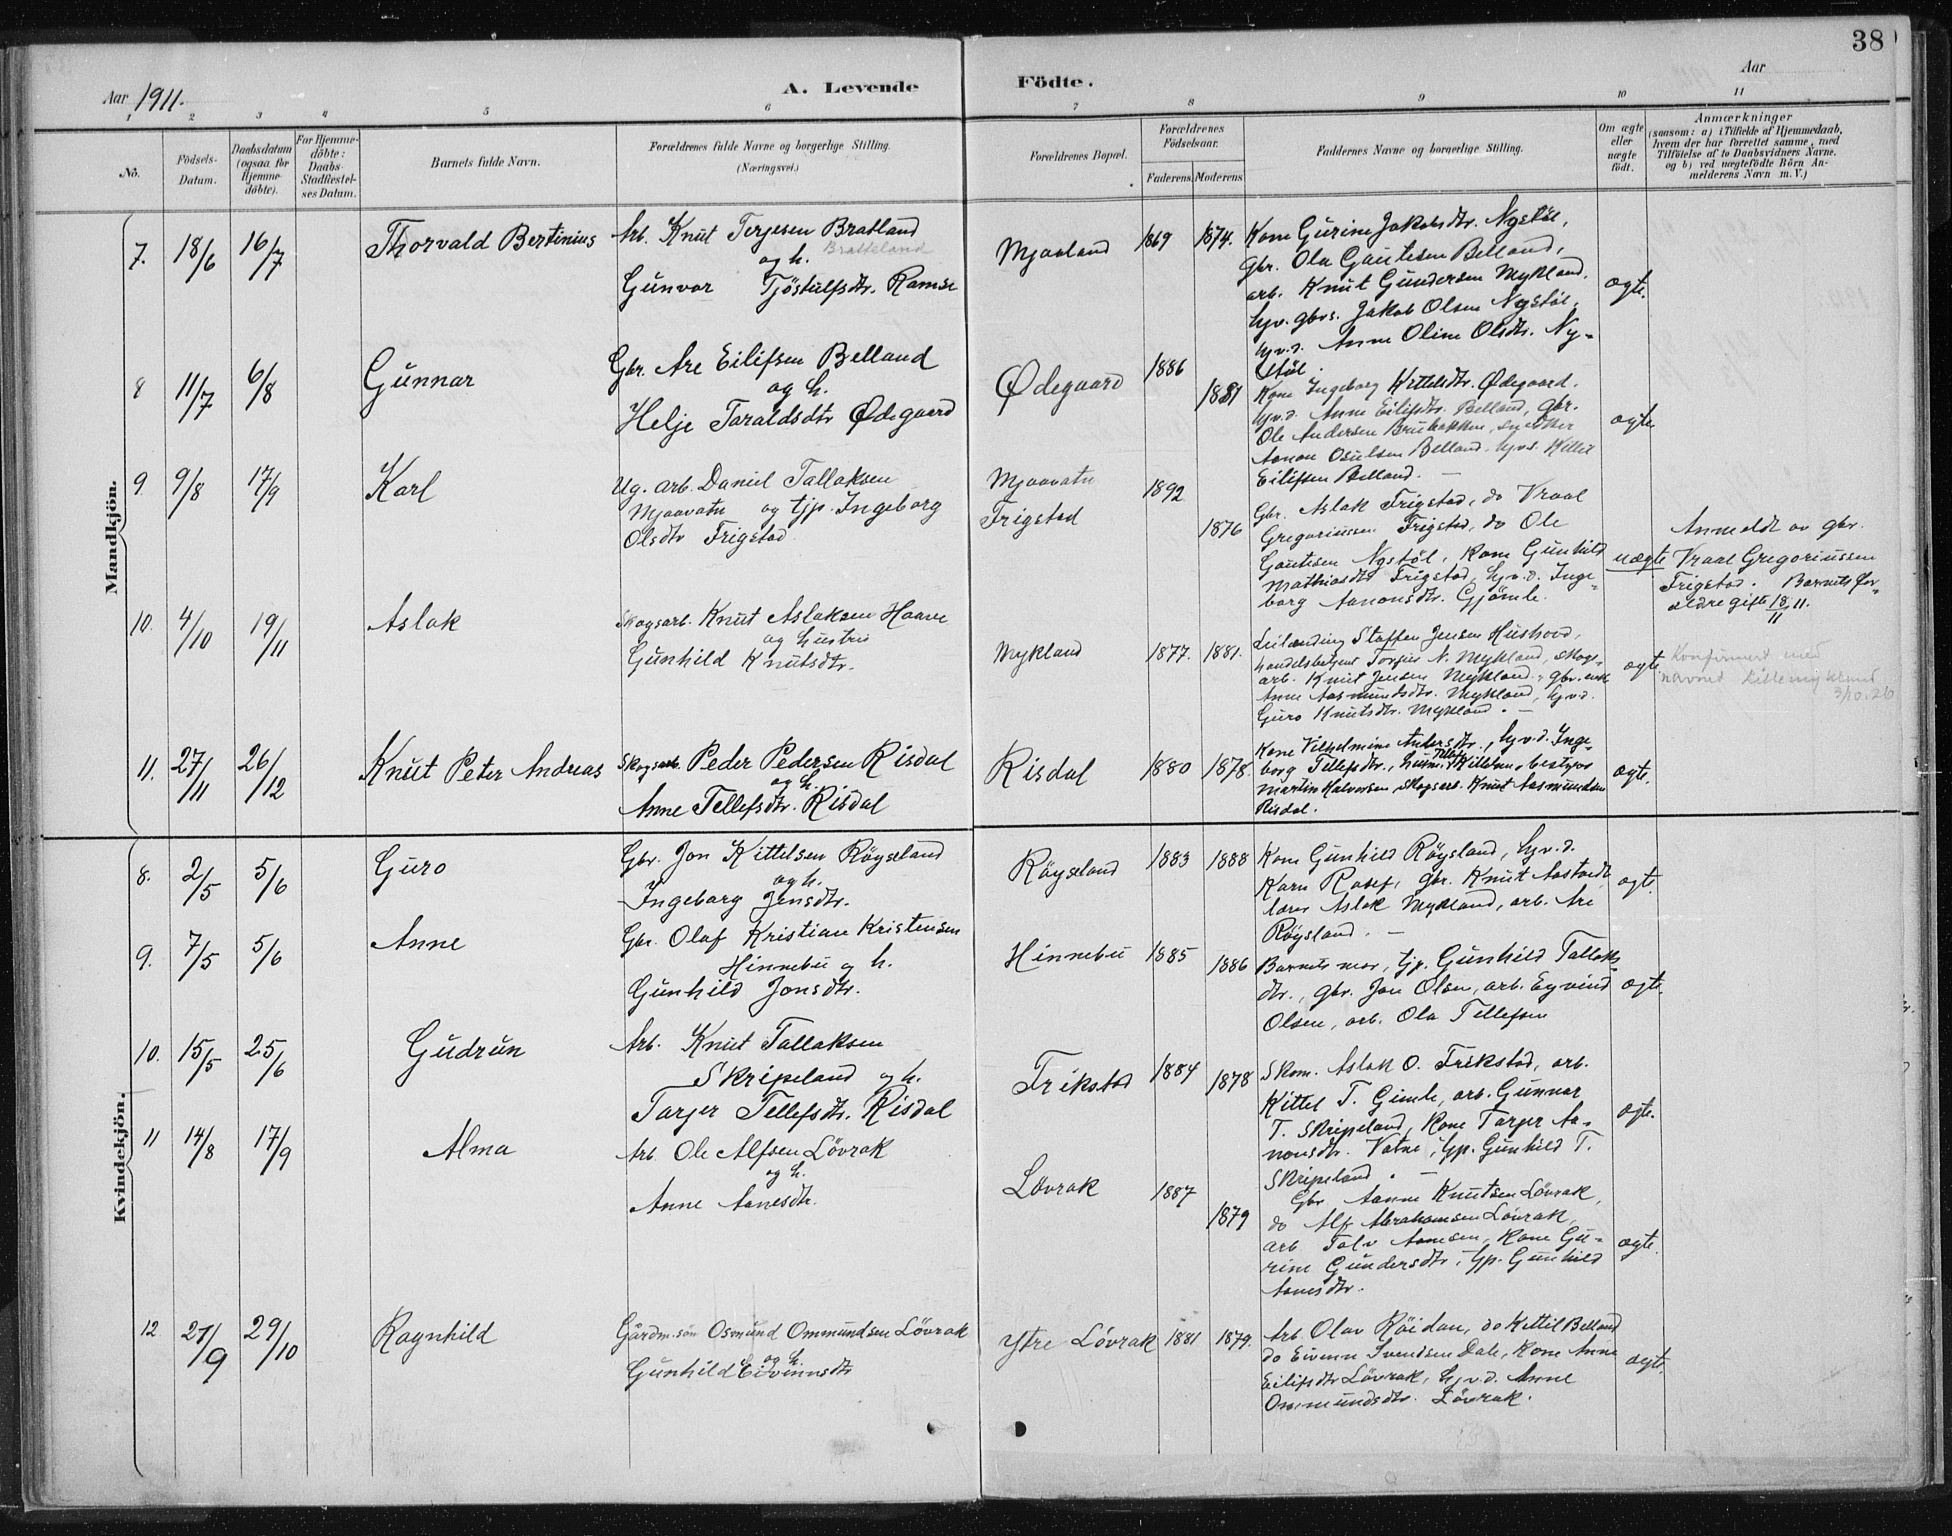 38
Aar 1911.
A. Levende Födte.
Aar
1 2 3 4 5 6 7 8 9 10 11
No.
Födsels-Datum.
Daabsdatum (ogsaa for Hjemme-döbte).
For Hjemme-döbte: Daabs-Stadfæstel-ses Datum.
Barnets fulde Navn.
Forældrenes fulde Navne og borgerlige Stilling.
(Næringsvei.)
Forældrenes Bopæl.
Forældrenes Födselsaar.
Faderens Moderens
Faddernes Navne og borgerlige Stilling.
Om ægte eller uægte födt.
Anmærkninger
(saasom: a) i Tilfælde af Hjemmedaab, hvem der har forrettet samme, med Tilföielse af to Daabsvidners Navne. og b) ved uægtefödte Börn An-melderens Navn m. V.)
Mandkjön.
7. 18/6 16/7 Thorvald Bertinius
Arb. Knut Terjesen Bratland
og h. Bratteland
Gunvor Tjöstulfsdtr. Ramse
Mjaaland 1869 1874.
Kone Gurine Jakobsdtr. Nystöl,
gbr. Ola Gautesen Belland,
arb. Knut Gundersen Mykland.
hjv. gbrs. Jakob Olsen Nystöl,
hjv.d. Anne Oline Olsdtr. Ny-
stöl.
ægte.
8 11/7 6/8 Gunnar
Gbr. Are Eilifsen Belland
og h.
Helje Taraldsdtr Ødegaard
Ødegaard 1886 1881
Kone Ingeborg Kittelsdtr. Ødegaard.
hjv.d. Anne Eilifsdtr. Belland, gbr.
Ole Andersen Brubakken, snedker
Aanon Osulsen Belland. hjv.s. Kittil
Eilifsen Belland. —
ægte
9 9/8 17/9 Karl
Ug. arb. Daniel Tallaksen
Mjaavatn og tjp. Ingeborg
Olsdtr Frigstad
Mjaavatn
Frigstad
1892 1876
Gbr. Aslak Frigstad, do Vraal
Gregoriussen Frigstad, do Ole
Gautesen Nystöl, Kone Gunhild
Mathiasdtr Frigstad, hjv.d. Inge-
borg Aanonsdtr. Gjömle.
uægte
Anmeldt av gbr.
Vraal Gregoriussen
Frigstad. Barnets for-
ældre gifte 18/11 11.
10. 4/10 19/11 Aslak
Skogsarb. Knut Aslaksen Haave
og hustru
Gunhild Knutsdtr.
Mykland 1877. 1881.
Leilending Staffen Jensen Hushovd,
handelsbetjent Torjus N. Mykland, skogs-
arb. Knut Jensen Mykland, gbr. enk
Anne Aasmundsdtr. Mykland, hjv.d.
Guro Knutsdtr. Mykland. —
ægte
Konfirmert med
navnet Lillemykland
3/10.26
11. 27/11 26/12 Knut Peter Andreas
Skogsarb. Peder Pedersen Risdal
og h.
Anne Tellefsdtr. Risdal
Risdal 1880 1878.
Kone Vilhelmine Andersdtr., hjv.d. Inge-
borg Tellefsdtr., Tellef Kittelsen, bestyrer
Martin Halvorsen, skogsarb. Knut Aasmundsen
Risdal.
ægte.
Kvindekjön.
8. 2/5 5/6 Guro
Gbr. Jon Kittelsen Röyseland
og h.
Ingeborg Jensdtr.
Röyseland 1883 1888
Kone Gunhild Röysland, hjv.d.
Karn gbr. Knut
lærer Aslak Mykland, arb. Are
Röysland. —
ægte.
9. 7/5 5/6 Anne
Gbr. Olaf Kristian Kristensen
Hinnebu og h.
Gunhild Jonsdtr.
Hinnebu 1885 1886
Barnets mor, tjp. Gunhild Tallaks-
dtr., gbr. Jon Olsen, arb. Eyvind
Olsen, arb. Ola Tellefsen
ægte.
10. 15/5 25/6 Gudrun
Arb. Knut Tallaksen
Skripeland og h.
Tarjer Tellefsdtr. Risdal
Frikstad 1884 1878
Skom. Aslak O. Frikstad, arb.
Kittel T. Gimle, arb. Gunnar
T. Skripeland, Kone Tarjer Aa-
nonsdtr. Vatne, tjp. Gunhild T.
Skripeland. —
ægte.
11 14/8 17/9 Alma
Arb. Ole Alfsen Lövrak
og h.
Anne Aanesdtr.
Lövrak 1887 1879
Gbr Aanne Knutsen Lövrak,
do Alf Abrahamsen Lövrak,
arb. Talv Aanesen, Kone Gu-
rine Gundersdtr, tjp. Gunhild
Aanesdtr.
ægte.
12 21/9 29/10 Ragnhild
Gårdm.søn Osmund Ommundsen Lövrak
og h.
Gunhild Eivinnsdtr
Ytre Lövrak 1881 1879.
Arb. Olav Röidan, do Kittil Belland
do Eivinn Svendsen Dale, Kone Anne
Eilifsdtr Lövrak, hjv.d. Anne
Ommundsdtr. Lövrak.
ægte.